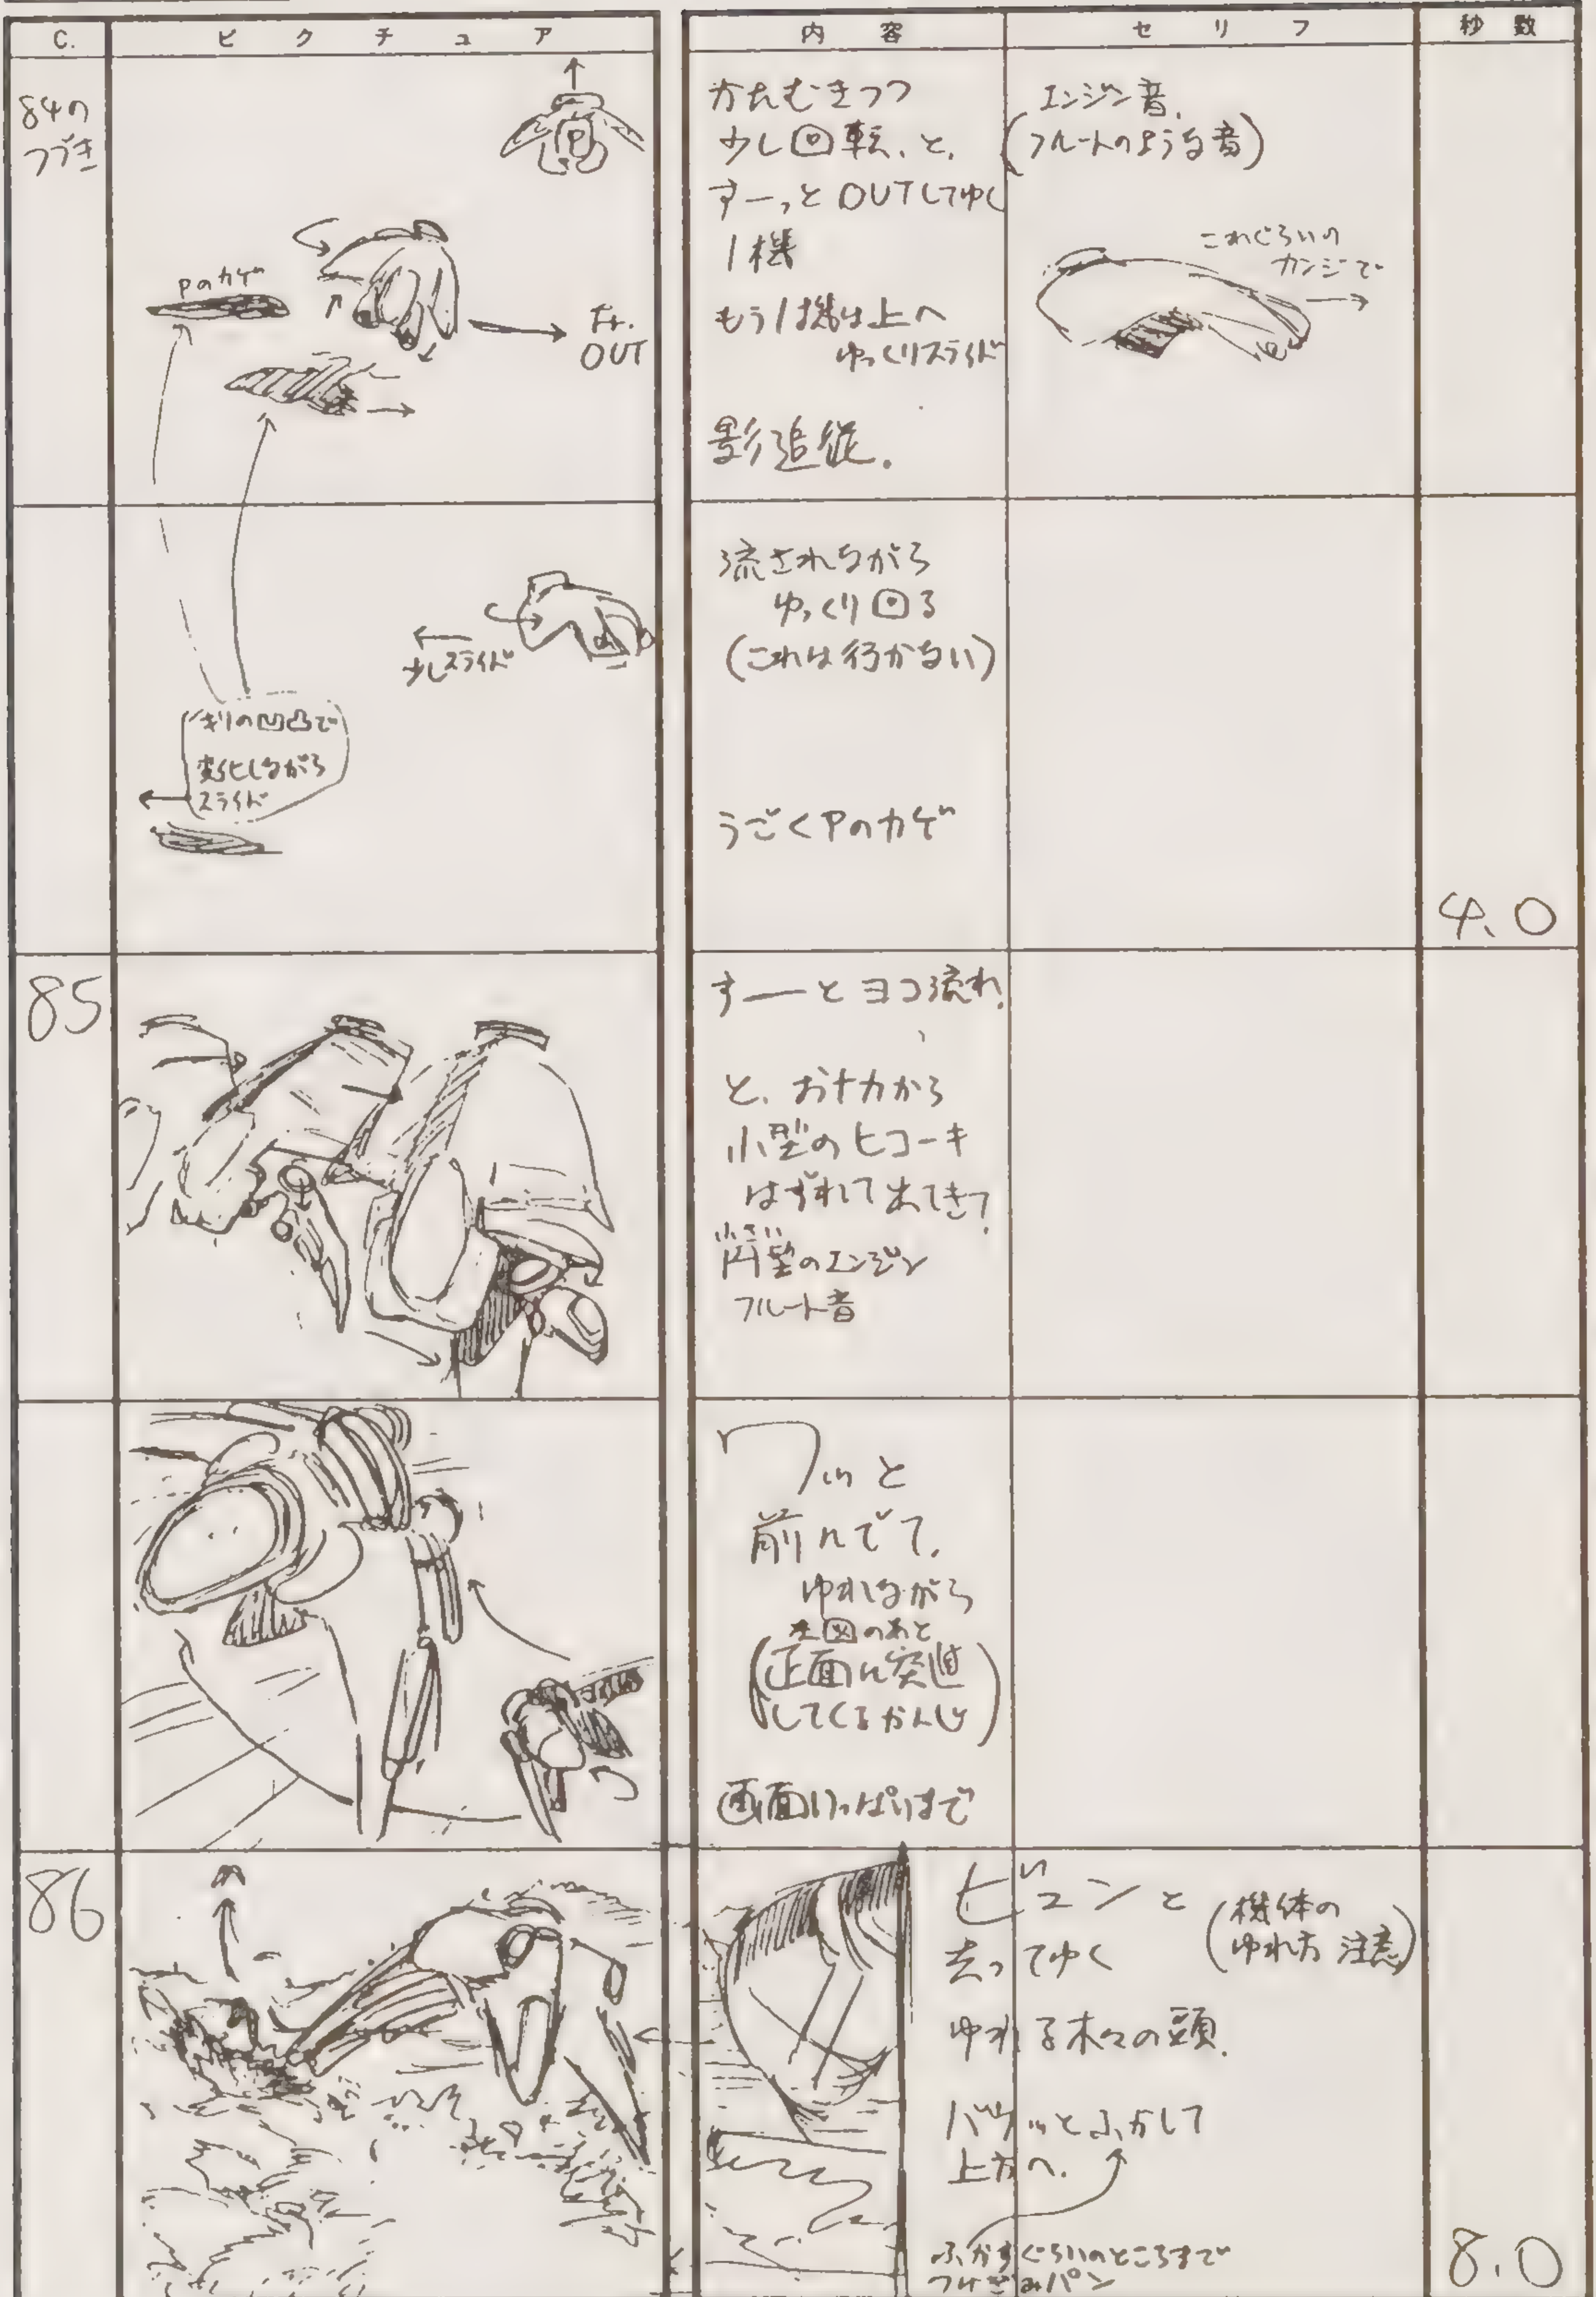 C.
ピクチュア
内容
セリフ
秒数
84の
つづき
Pのカゲ
OUT
かたむきつつ
少し回転、と、
すーっとOUTしてゆく
1機
もう1機は上へ
ゆっくりスライド
影追従.
エンジン音.
(フルートのような音)
これぐらいの
カンジで
少しスライド
キリの凹凸で
変化しながら
スライド
流されながら
ゆっくり回る
(これは行かない)
うごくPのカゲ
4.0
85
すーーとヨコ流れ.
と、おナカから
小型のヒコーキ
はずれて出てきて
小さい
のエンジン
フルート音
ワッと
前にでて.
ゆれながら
左図のあと
(正面に突進
してくるかんじ)
画面いっぱいまで
86
ビュンと
去ってゆく
(機体の
ゆれ方 注意)
ゆれる木々の頭.
バウッとふかして
上方へ.
ふかすぐらいのところまで
つけこみパン
8.0